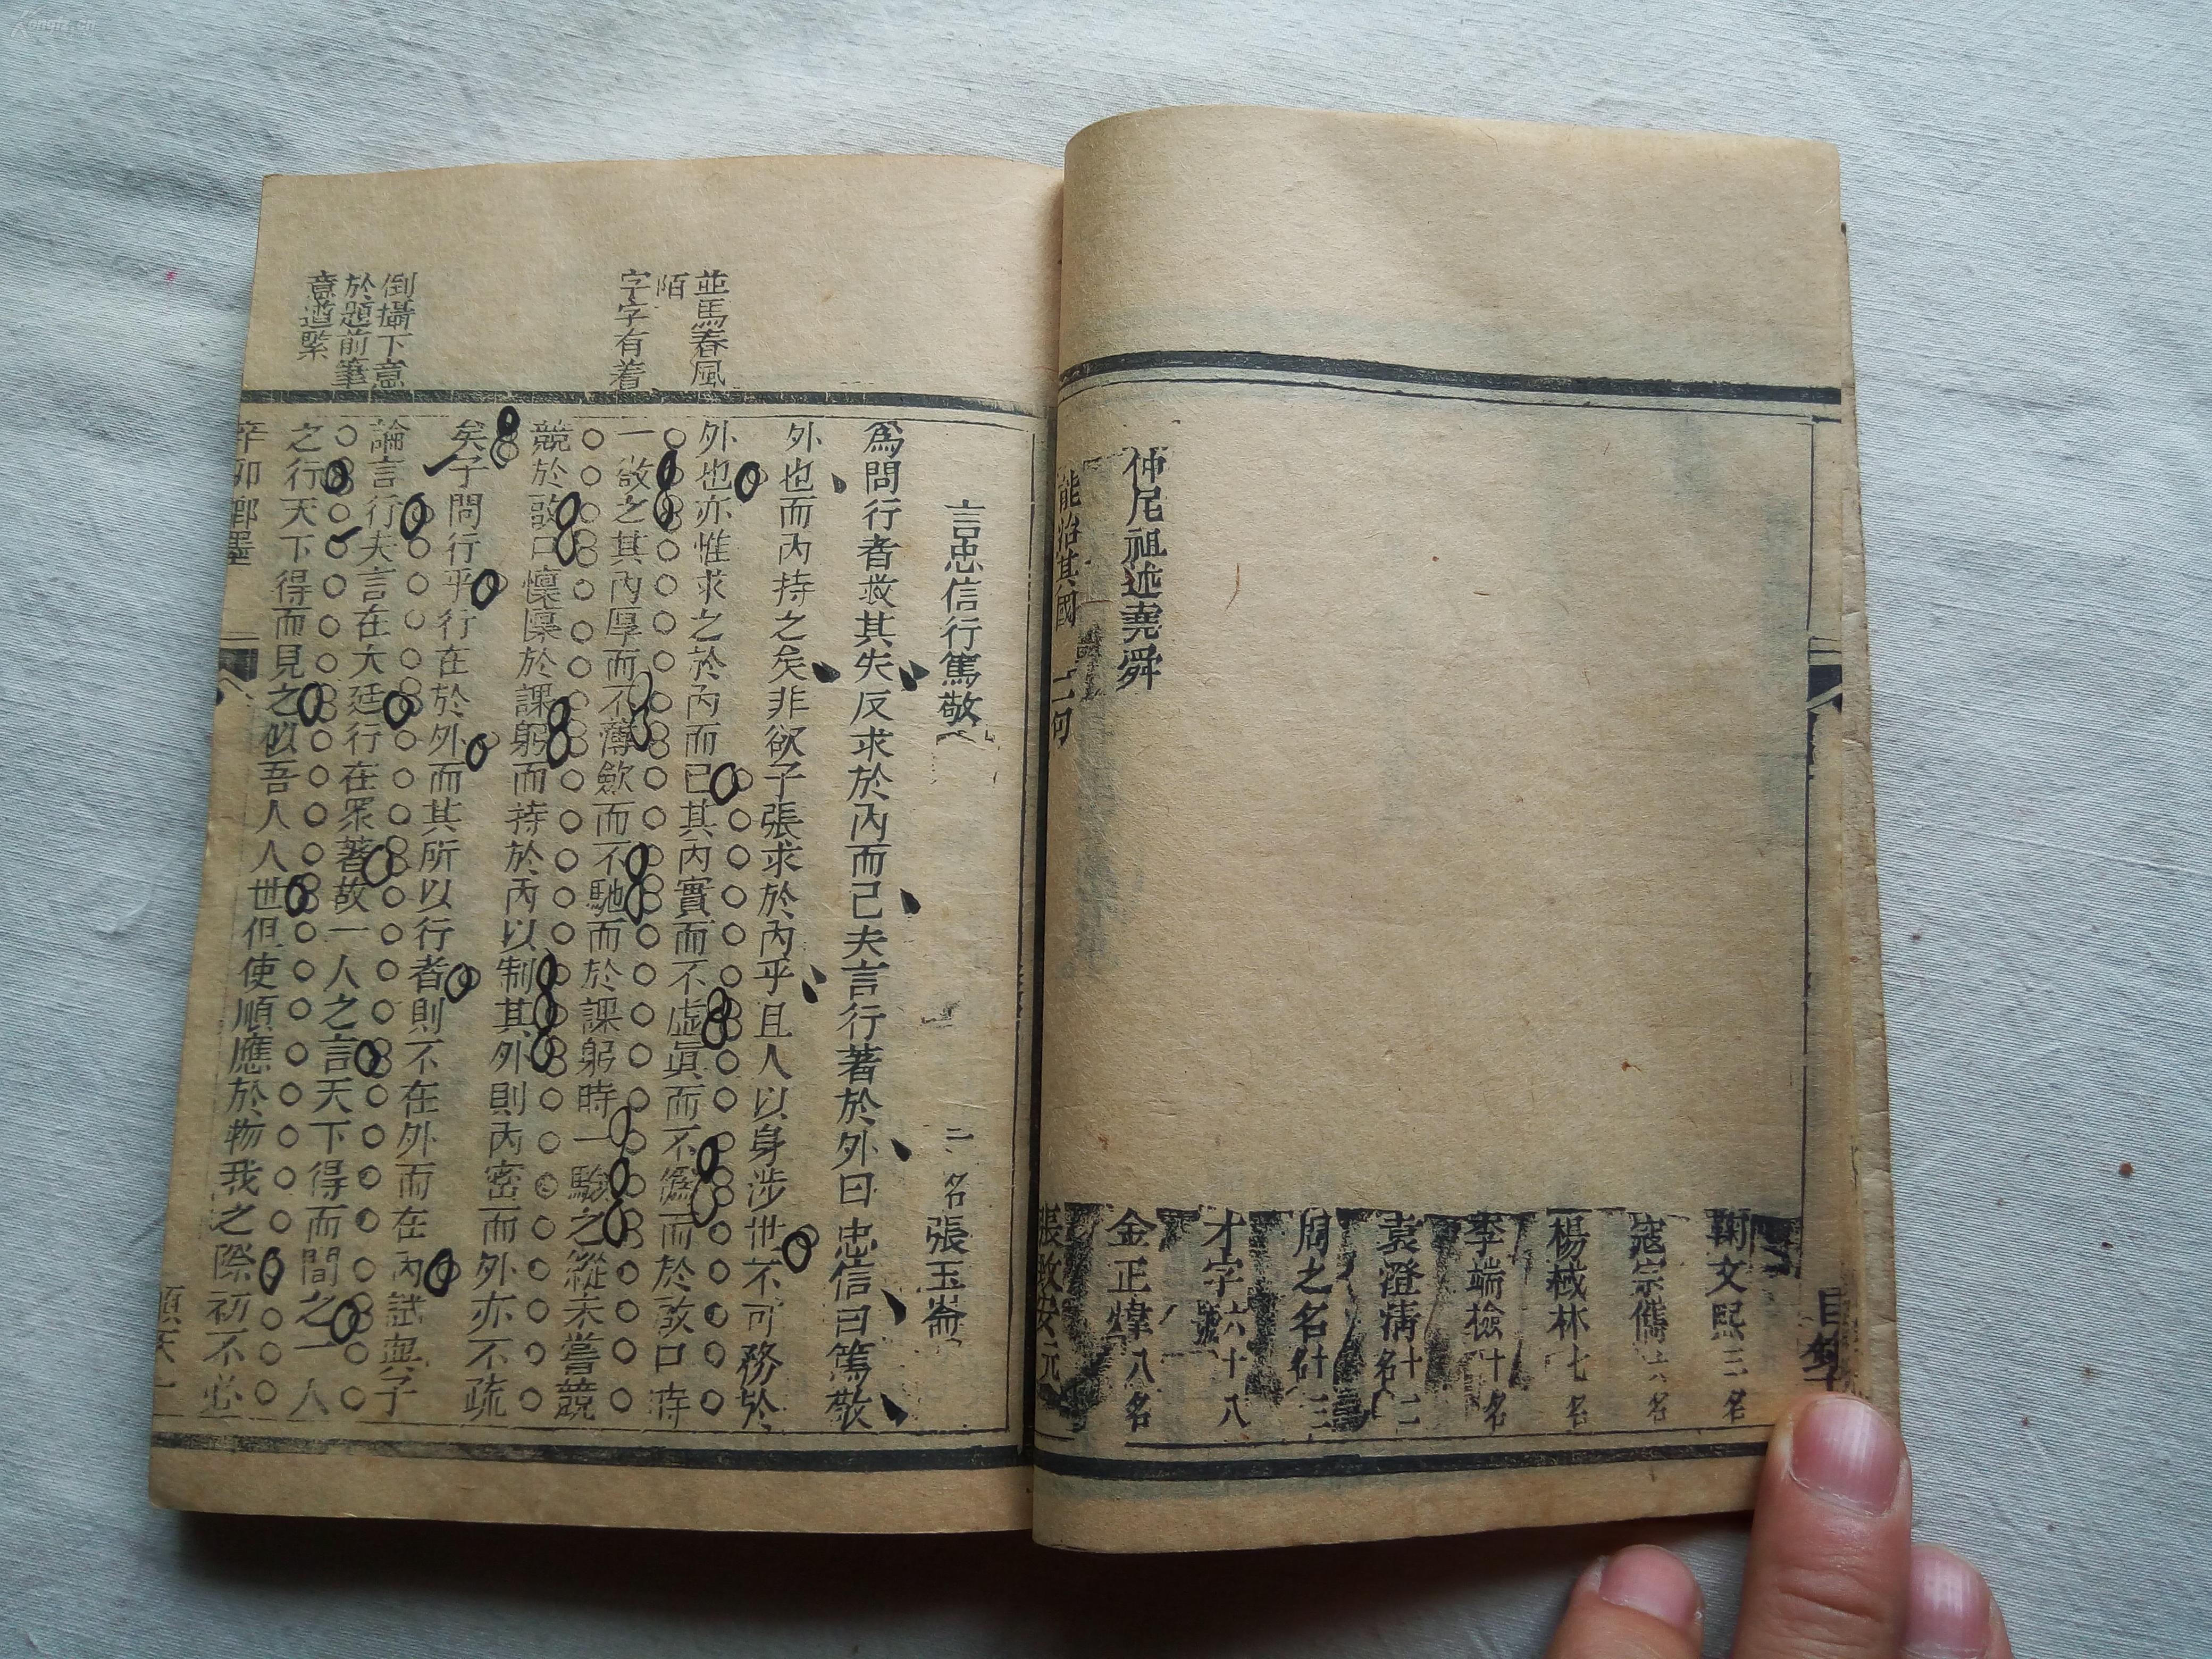 Kongfz.cn
目錄
鞠文熙三名
寇宗儁六名
楊棫林七名
李端檢十名
袁澄清十二名
周之名廿三名
才字六十八號
仲尼祖述堯舜
金正煒八名
能治其國二句
張敢安元
言忠信行篤敬
二名張玉崙
為問行者救其失反求於內而已夫言行著於外曰忠信曰篤敬
外也而內持之矣非欲子張求於內乎且人以身涉世不可務於
並馬春風
陌
字字有着
外也亦惟求之於內而已其內實而不虛眞而不僞而於啟口時
一啟之其內厚而不薄歛而不馳而於課躬時一驗之縱未嘗競
競於啟口懍懍於課躬而持於內以制其外則內密而外亦不疏
矣子問行乎行在於外而其所以行者則不在外而在內試與子
倒攝下意
於題前筆
意遒緊
論言行夫言在大廷行在眾著故一人之言天下得而聞之一人
之行天下得而見之似吾人人世但使順應於物我之際初不必
辛卯鄉墨
順天
一